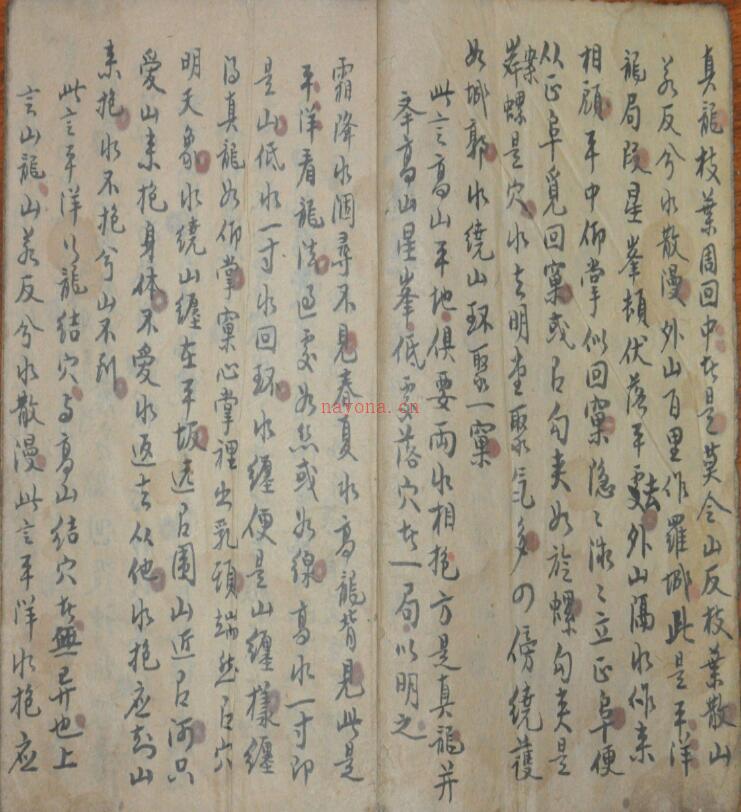 真龍枝葉周回中者是莫令山反枝葉散山
若反兮水散漫外山百里作羅城此是平洋
龍局段星峯頓伏落平處去外山隔水作来
相顧平中仰掌似回窠隐〻微〻立正阜便
从正阜覓回窠或名勾夹如旋螺勾夹是
案
岸螺是穴水去明堂聚氣多四傍繞護
如城郭水繞山環聚一窠
此言高山平地俱要两水相抱方是真龍并
夆高山星峯低處落穴者一局以明之
霜降水涸尋不見春夏水高龍背見此是
平洋看龍法過處如絲或如線高水一寸即
是山低水一寸水回環水纏便是山纏樣纏
得真龍如仰掌窠心掌裡出乳頭端然有穴
明天象水繞山纏在平坂远有围山近有河只
愛山来抱身体不愛水返去从他水抱应知山
来抱水不抱兮山不到
此言平洋行龍結穴与高山結穴者無異也上
言山龍山若反兮水散漫此言平洋水抱應
nayona.cn